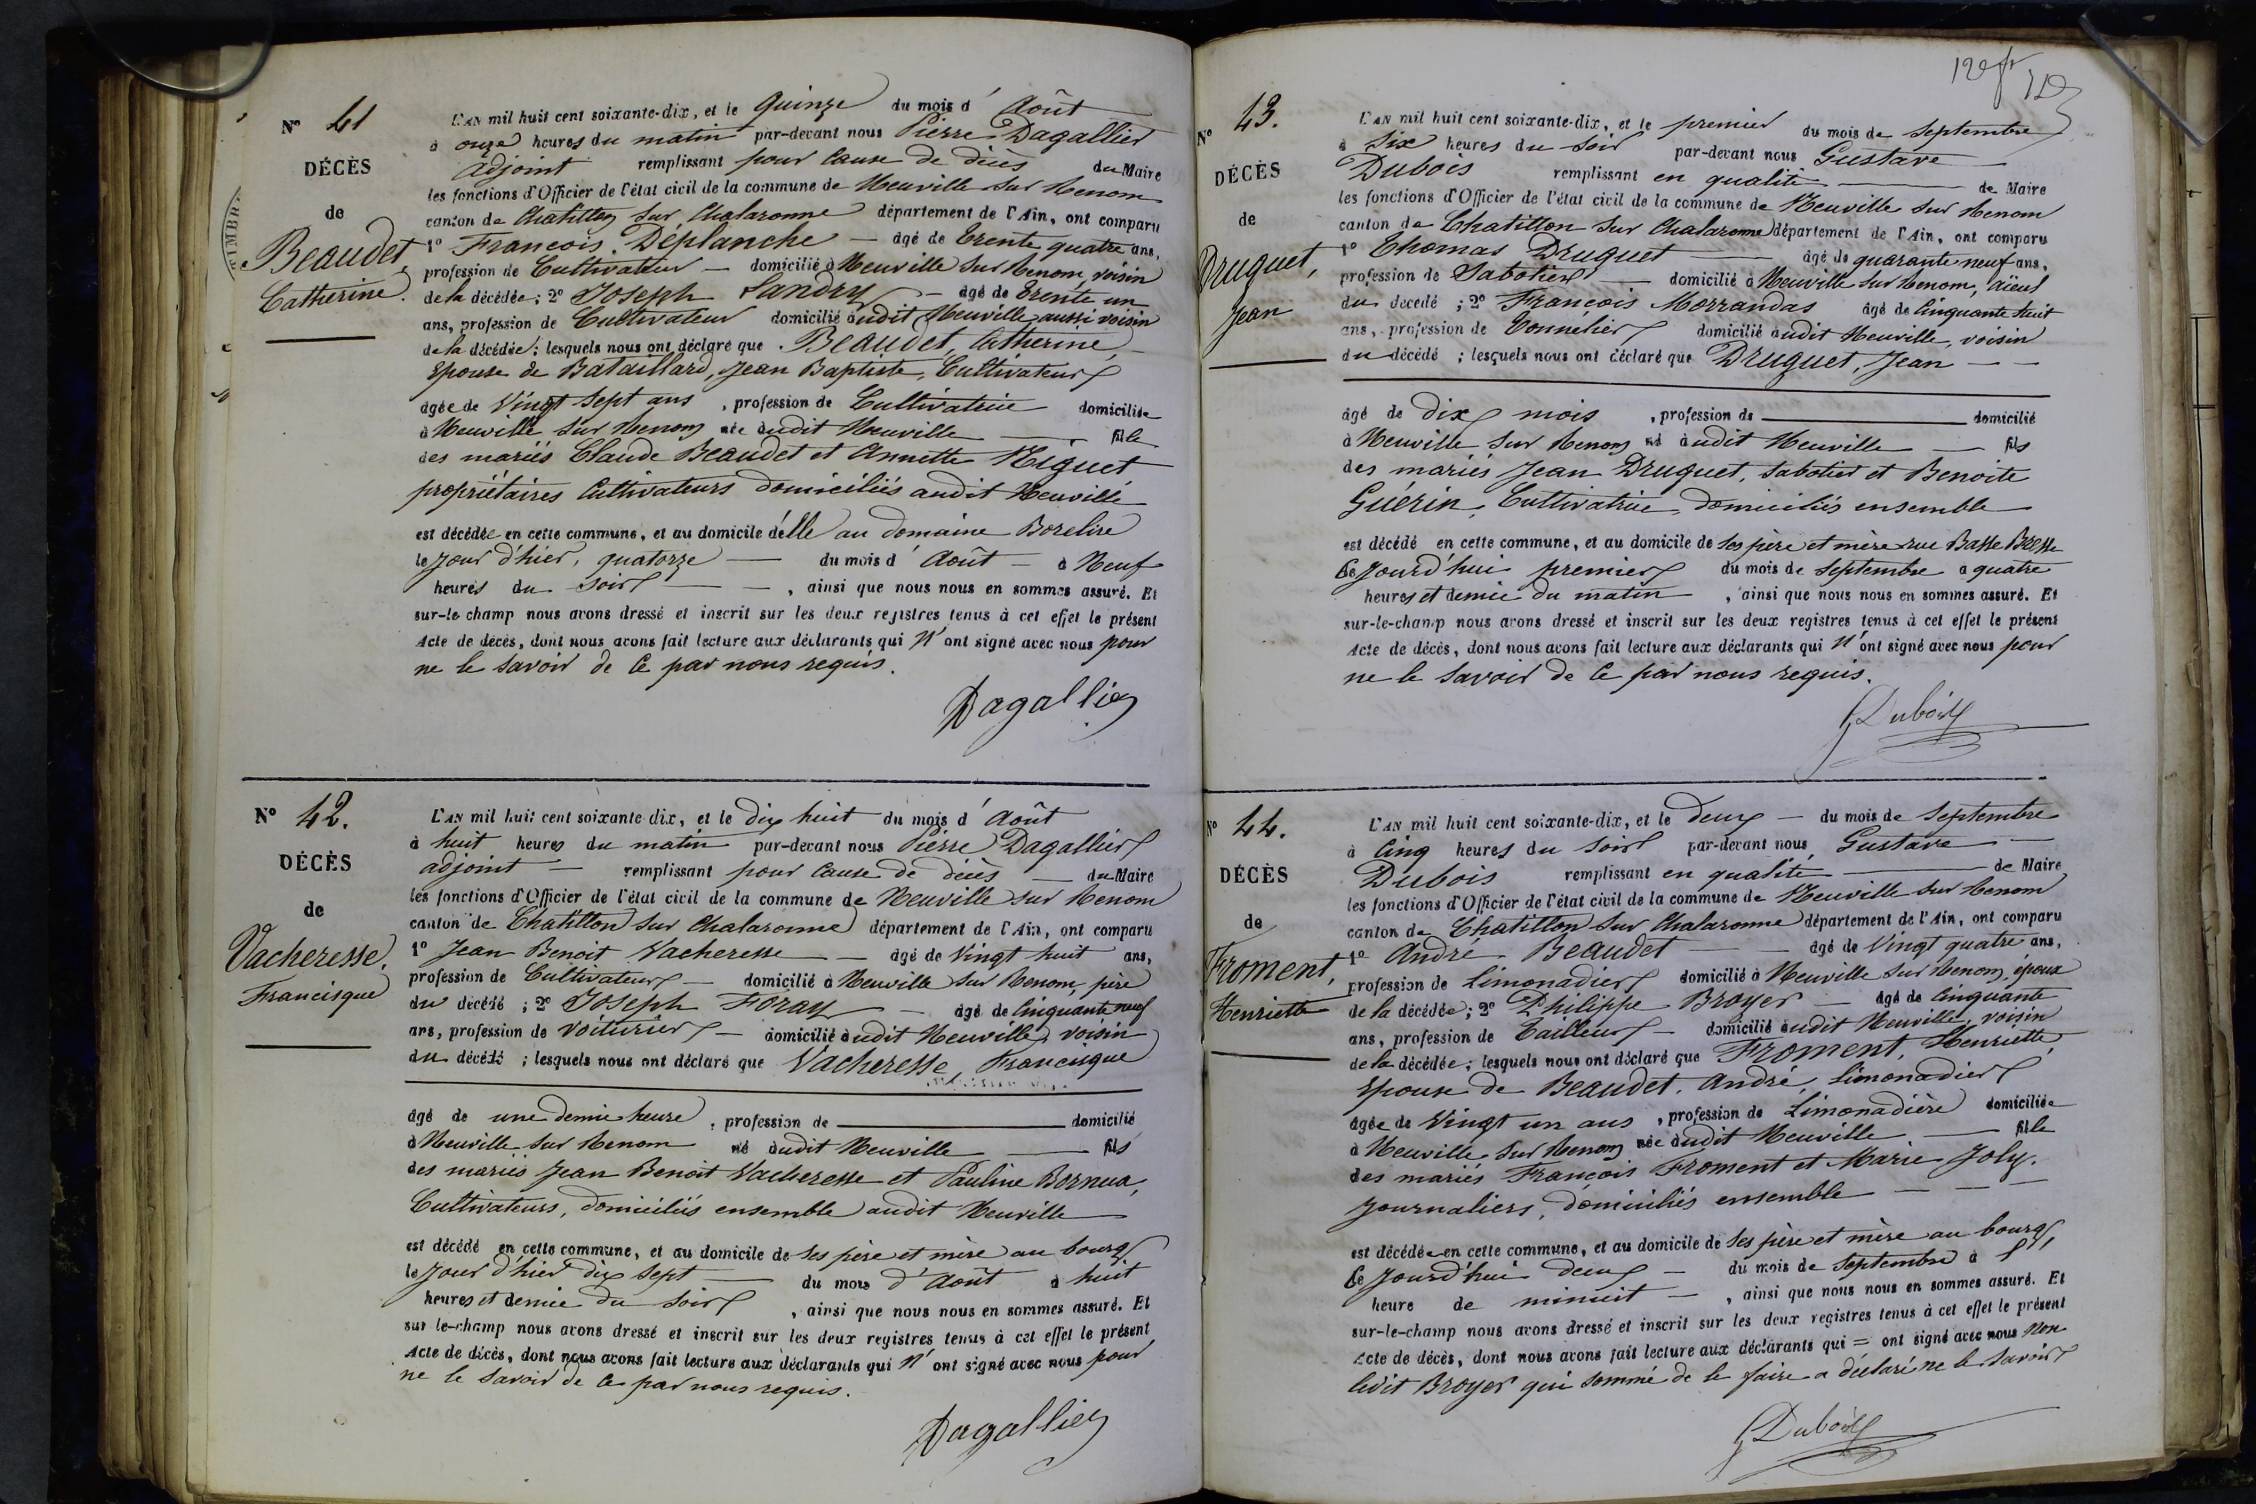 N° 41
DÉCÈS
de
Beaudet,
Catherine.
L'AN mil huit cent soixante-dix, et le Quinze du mois d'Août
à onze heures du matin par-devant nous Pierre Dagallier
adjoint remplissant pour cause de décès du Maire
les fonctions d'Officier de l'état civil de la commune de Neuville sur Renom
canton de Chatillon sur Chalaronne département de l'Ain, ont comparu
1° François Déplanche — âgé de trente quatre ans,
profession de Cultivateur — domicilié à Neuville sur Renom, voisin
de la décédée ; 2° Joseph Landry — âgé de trente un
ans, profession de Cultivateur domicilié audit Neuville, aussi voisin
de la décédée ; lesquels nous ont déclaré que Beaudet, Catherine,
Epouse de Bataillard, Jean Baptiste, Cultivateur
âgée de Vingt sept ans, profession de Cultivatrice domiciliée
à Neuville sur Renom née audit Neuville — fille
des mariés Claude Beaudet et Annette Niguet
propriétaires Cultivateurs domiciliés audit Neuville
est décédée en cette commune, et au domicile d'elle au domaine Borelire
le jour d'hier, quatorze — du mois d'Août — à Neuf
heures du soir — , ainsi que nous nous en sommes assuré. Et
sur-le-champ nous avons dressé et inscrit sur les deux registres tenus à cet effet le présent
Acte de décès, dont nous avons fait lecture aux déclarants qui n'ont signé avec nous pour
ne le savoir de ce par nous requis.
Dagallier
N° 42.
DÉCÈS
de
Vacheresse,
Francisque
L'AN mil huit cent soixante-dix, et le dix huit du mois d'Août
à huit heures du matin par-devant nous Pierre Dagallier
adjoint — remplissant pour cause de décès — du Maire
les fonctions d'Officier de l'état civil de la commune de Neuville sur Renom
canton de Chatillon sur Chalaronne département de l'Ain, ont comparu
1° Jean Benoit Vacheresse — âgé de Vingt huit ans,
profession de Cultivateur — domicilié à Neuville sur Renom, père
du décédé ; 2° Joseph Foray — âgé de Cinquante neuf
ans, profession de voiturier — domicilié audit Neuville, voisin
du décédé ; lesquels nous ont déclaré que Vacheresse, Francisque
âgé de une demie heure, profession de — domicilié
à Neuville sur Renom né audit Neuville — fils
des mariés Jean Benoit Vacheresse et Pauline Bornua,
Cultivateurs, domiciliés ensemble audit Neuville —
est décédé en cette commune, et au domicile de ses père et mère au bourg
le jour d'hier dix sept — du mois d'Août à huit
heures et demie du soir , ainsi que nous nous en sommes assuré. Et
sur le-champ nous avons dressé et inscrit sur les deux registres tenus à cet effet le présent
Acte de décès, dont nous avons fait lecture aux déclarants qui n'ont signé avec nous pour
ne le savoir de ce par nous requis.
Dagallier
N° 43.
DÉCÈS
de
Druguet,
Jean
L'AN mil huit cent soixante-dix, et le premier du mois de Septembre
à Six heures du soir par-devant nous Gustave —
Dubois remplissant en qualité — de Maire
les fonctions d'Officier de l'état civil de la commune de Neuville sur Renom
canton de Chatillon sur Chalaronne département de l'Ain, ont comparu
1° Thomas Druguet — âgé de quarante neuf ans,
profession de Sabotier — domicilié à Neuville sur Renom, aïeul
du décédé ; 2° François Morrandas âgé de Cinquante huit
ans, profession de Tonnelier domicilié audit Neuville, voisin
du décédé ; lesquels nous ont déclaré que Druguet, Jean — —
âgé de dix mois , profession de — domicilié
à Neuville sur Renom né audit Neuville — fils
des mariés Jean Druguet, Sabotier et Benoite
Guérin, Cultivatrice, domiciliés ensemble —
est décédé en cette commune, et au domicile de ses père et mère rue Basse Bresse
Ce Jourd'hui premier du mois de Septembre à quatre
heures et demie du matin , ainsi que nous nous en sommes assuré. Et
sur-le-champ nous avons dressé et inscrit sur les deux registres tenus à cet effet le présent
Acte de décès, dont nous avons fait lecture aux déclarants qui n'ont signé avec nous pour
ne le savoir de ce par nous requis.
G Dubois
N° 44.
DÉCÈS
de
Froment,
Henriette
L'AN mil huit cent soixante-dix, et le deux — du mois de Septembre
à Cinq heures du soir par-devant nous Gustave —
Dubois remplissant en qualité — de Maire
les fonctions d'Officier de l'état civil de la commune de Neuville sur Renom
canton de Chatillon sur Chalaronne département de l'Ain, ont comparu
1° André Beaudet — âgé de Vingt quatre ans,
profession de limonadier domicilié à Neuville sur Renom, époux
de la décédée ; 2° Philippe Broyer — âgé de Cinquante
ans, profession de Tailleur — domicilié audit Neuville, voisin
de la décédée ; lesquels nous ont déclaré que Froment, Henriette,
Epouse de Beaudet, André, Limonadier
âgée de Vingt un ans , profession de Limonadière domiciliée
à Neuville sur Renom née audit Neuville — fille
des mariés François Froment et Marie Joly,
Journaliers, domiciliés ensemble — — —
est décédée en cette commune, et au domicile de ses père et mère au bourg
Ce Jourd'hui deux — du mois de Septembre à l'
heure de minuit — , ainsi que nous nous en sommes assuré. Et
sur-le-champ nous avons dressé et inscrit sur les deux registres tenus à cet effet le présent
Acte de décès, dont nous avons fait lecture aux déclarants qui = ont signé avec nous Non
ledit Broyer qui sommé de le faire a déclaré ne le savoir
G Dubois